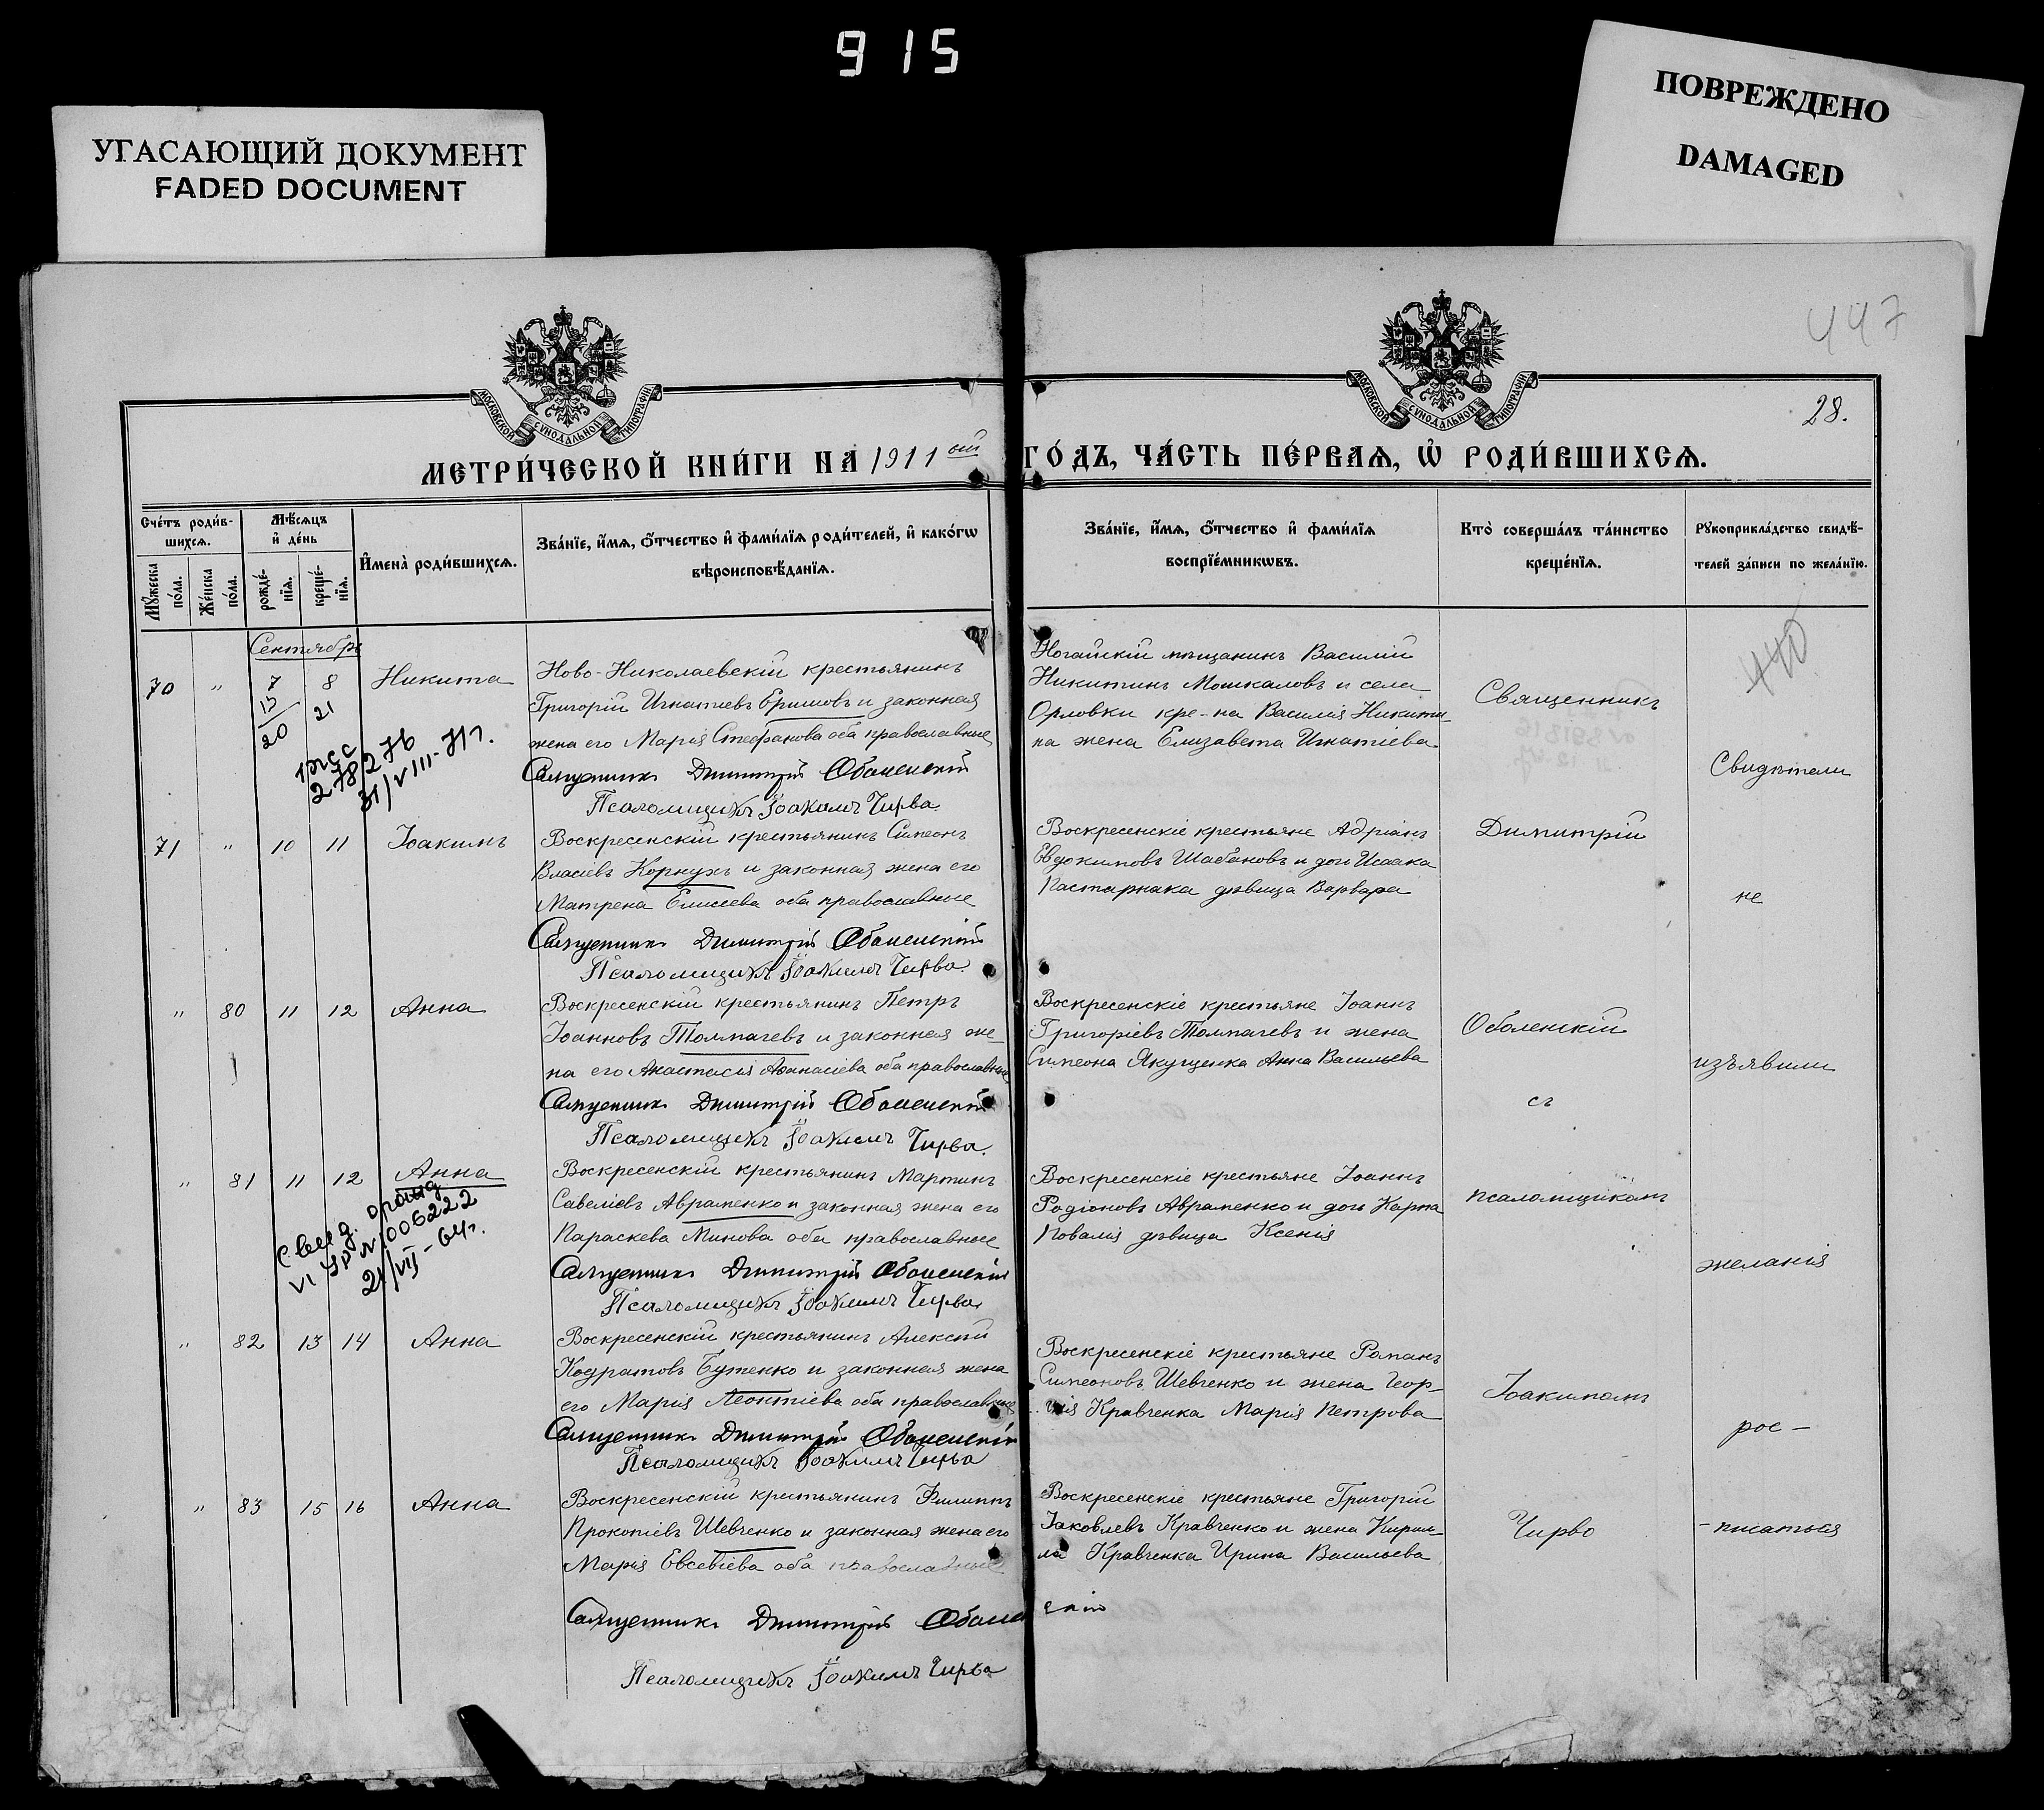 915
УГАСАЮЩИЙ ДОКУМЕНТ
FADED DOCUMENT
ПОВРЕЖДЕНО
DAMAGED
447
28.
МОСКОВСКОЙ СУНОДАЛЬНОЙ ТИПОГРАФІИ
МОСКОВСКОЙ СУНОДАЛЬНОЙ ТИПОГРАФІИ
МЕТРИ́ЧЕСКОЙ КНИ́ГИ НА 1911 ый ГО́ДЪ, ЧА́СТЬ ПЕ́РВАѦ, Ѡ РОДИ́ВШИХСѦ.
Сче́тъ роди́в-
шихсѧ.
Мꙋ́жеска по́ла.
Же́нска по́ла.
Мѣ́сѧцъ
и де́нь
рожде́-нїѧ.
креще́-нїѧ.
Имена̀ роди́вшихсѧ.
Зва́нїе, и́мѧ, о́тчество и фами́лїѧ роди́телей, и како́гѡ
вѣроисповѣ́данїѧ.
Зва́нїе, и́мѧ, о́тчество и фами́лїѧ
воспрїе́мникѡвъ.
Кто̀ соверша́лъ та́инство
креще́нїѧ.
Рꙋкоприкла́дство свидѣ́-
телей за́писи по жела́нїю.
Сентябрь
70 " 7 8 Никита
13
20 21
278276
31/VIII-71г.
Ново-Николаевскій крестьянинъ
Григорій Игнатіевъ Ершовъ и законная
жена его Марія Стефанова оба православные
Священникъ Димитрій Оболенскій
Псаломщикъ Іоакимъ Чирва
Ногайскій мѣщанинъ Василій
Никитинъ Мошкаловъ и села
Орловки кре-на Василія Никити-
на жена Елизавета Игнатіева.
Священникъ
440
Свидѣтели
71 " 10 11 Іоакимъ
Воскресенскій крестьянинъ Симеонъ
Власіевъ Корнухъ и законная жена его
Матрена Елисеева оба православные
Священникъ Димитрій Оболенскій
Псаломщикъ Іоакимъ Чирва
Воскресенскіе крестьяне Адріанъ
Евдокимовъ Шабановъ и дочь Исаака
Пастарнака дѣвица Варвара
Димитрій
не
" 80 11 12 Анна
Воскресенскій крестьянинъ Петръ
Іоанновъ Толмачевъ и законная же-
на его Анастасія Аѳанасіева оба православные
Священникъ Димитрій Оболенскій
Псаломщикъ Іоакимъ Чирва.
Воскресенскіе крестьяне Іоаннъ
Григоріевъ Толмачевъ и жена
Симеона Якущенка Анна Васильева
Оболенскій
съ
изъявили
" 81 11 12 Анна
006222
21/VII-64г.
Воскресенскій крестьянинъ Мартинъ
Савеліевъ Авраменко и законная жена его
Параскева Минова оба православные
Священникъ Димитрій Оболенскій
Псаломщикъ Іоакимъ Чирва
Воскресенскіе крестьяне Іоаннъ
Родіоновъ Авраменко и дочь Карпа
Коваля дѣвица Ксенія
псаломщикомъ
желанія
" 82 13 14 Анна
Воскресенскій крестьянинъ Алексій
Кодратовъ Бутенко и законная жена
его Марія Леонтіева оба православные
Священникъ Димитрій Оболенскій
Псаломщикъ Іоакимъ Чирва
Воскресенскіе крестьяне Романъ
Симеоновъ Шевченко и жена Геор-
гія Кравченка Марія Петрова
Іоакимомъ
рос-
" 83 15 16 Анна
Воскресенскій крестьянинъ Филиппъ
Прокопіевъ Шевченко и законная жена его
Марія Евсевіева оба православные
Священникъ Димитрій Оболенскій
Псаломщикъ Іоакимъ Чирва
Воскресенскіе крестьяне Григорій
Іаковлевъ Кравченко и жена Кирил-
ла Кравченка Ирина Васильева
Чирво
-писаться